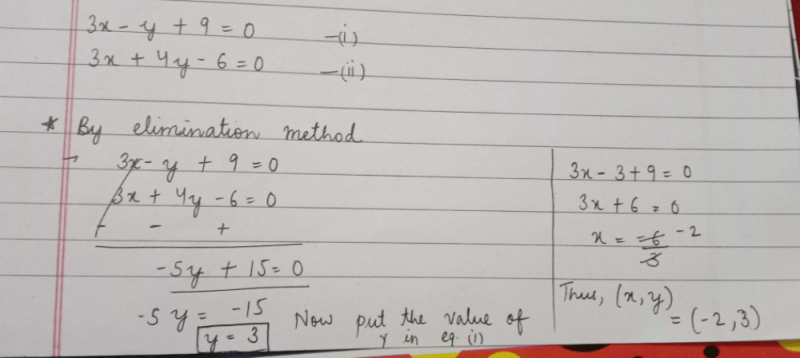 3x - y + 9 = 0 —(i)
3x + 4y - 6 = 0 —(ii)
* By elimination method
→ 3x - y + 9 = 0
3x + 4y - 6 = 0
- - +
-5y + 15 = 0
-5y = -15
y = 3
Now put the value of
y in eq. (i)
3x - 3 + 9 = 0
3x + 6 = 0
x = -6/3 -2
Thus, (x, y)
= (-2, 3)